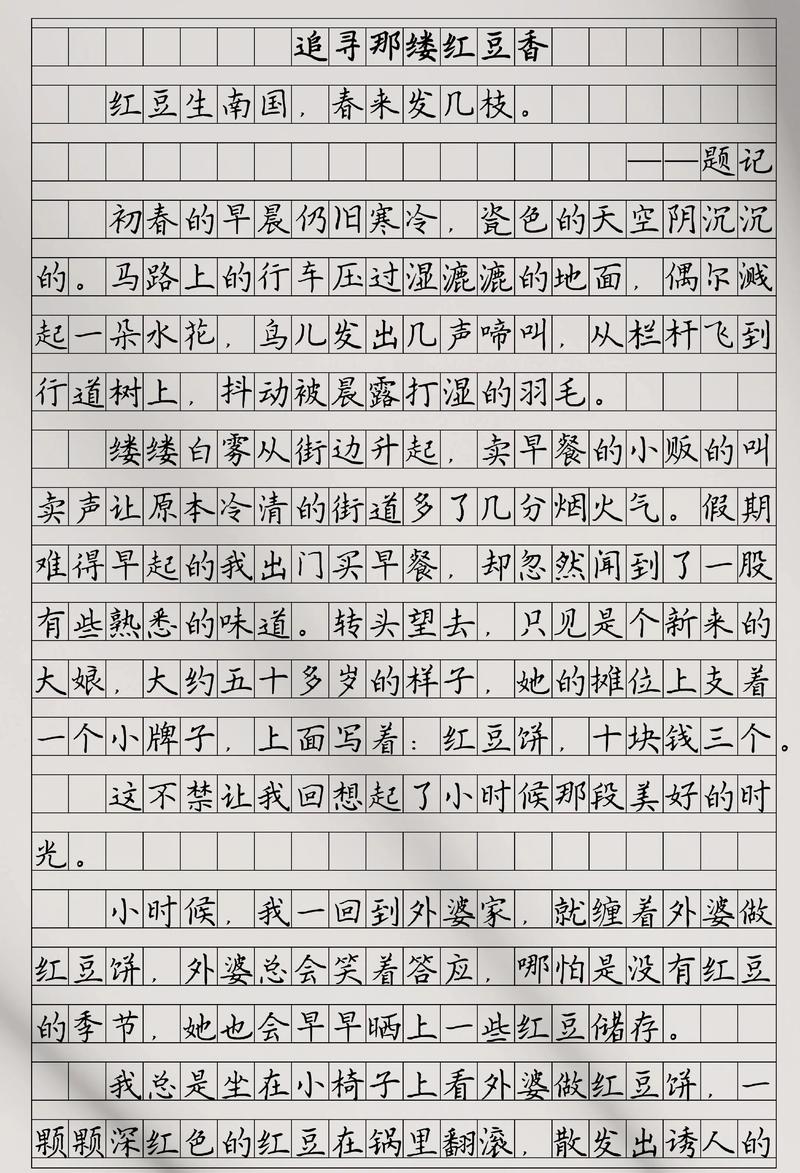 追寻那缕红豆香
红豆生南国，春来发几枝。
——题记
初春的早晨仍旧寒冷，瓷色的天空阴沉沉
的。马路上的行车压过湿漉漉的地面，偶尔溅
起一朵水花，鸟儿发出几声啼叫，从栏杆飞到
行道树上，抖动被晨露打湿的羽毛。
缕缕白雾从街边升起，卖早餐的小贩的叫
卖声让原本冷清的街道多了几分烟火气。假期
难得早起的我出门买早餐，却忽然闻到了一股
有些熟悉的味道。转头望去，只见是个新来的
大娘，大约五十多岁的样子，她的摊位上支着
一个小牌子，上面写着：红豆饼，十块钱三个。
这不禁让我回想起了小时候那段美好的时
光。
小时候，我一回到外婆家，就缠着外婆做
红豆饼，外婆总会笑着答应，哪怕是没有红豆
的季节，她也会早早晒上一些红豆储存。
我总是坐在小椅子上看外婆做红豆饼，一
颗颗深红色的红豆在锅里翻滚，散发出诱人的